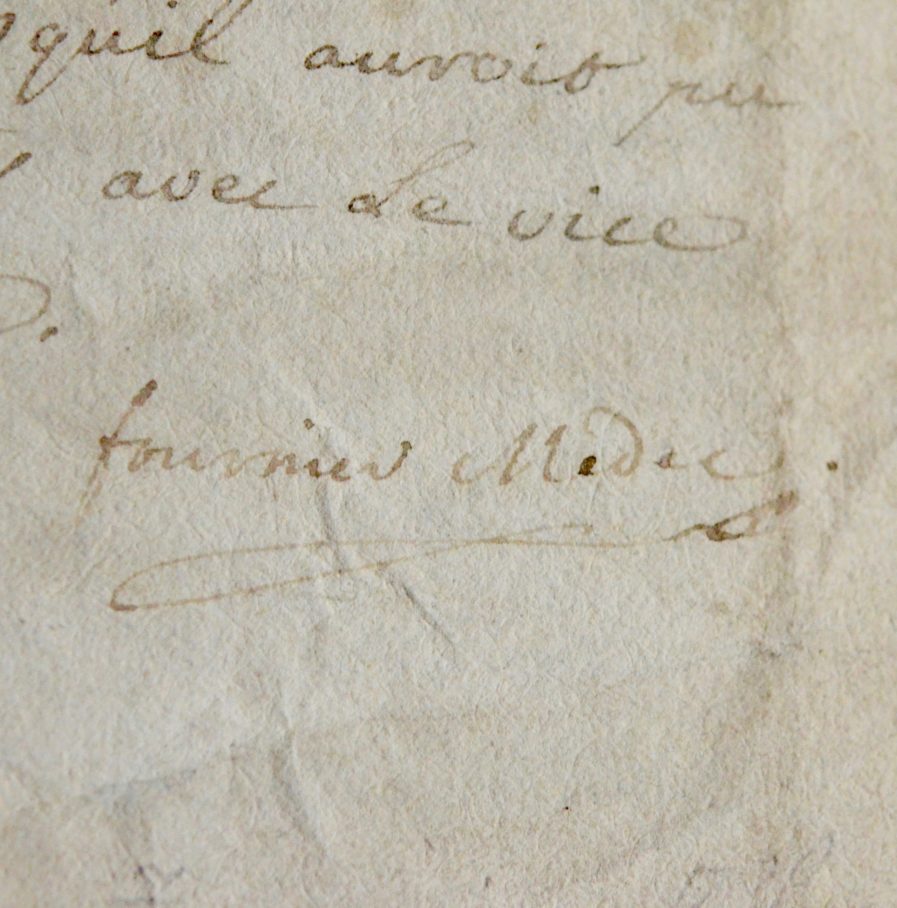 qu'il auroit pu
avec Le vice
fournier Médec.